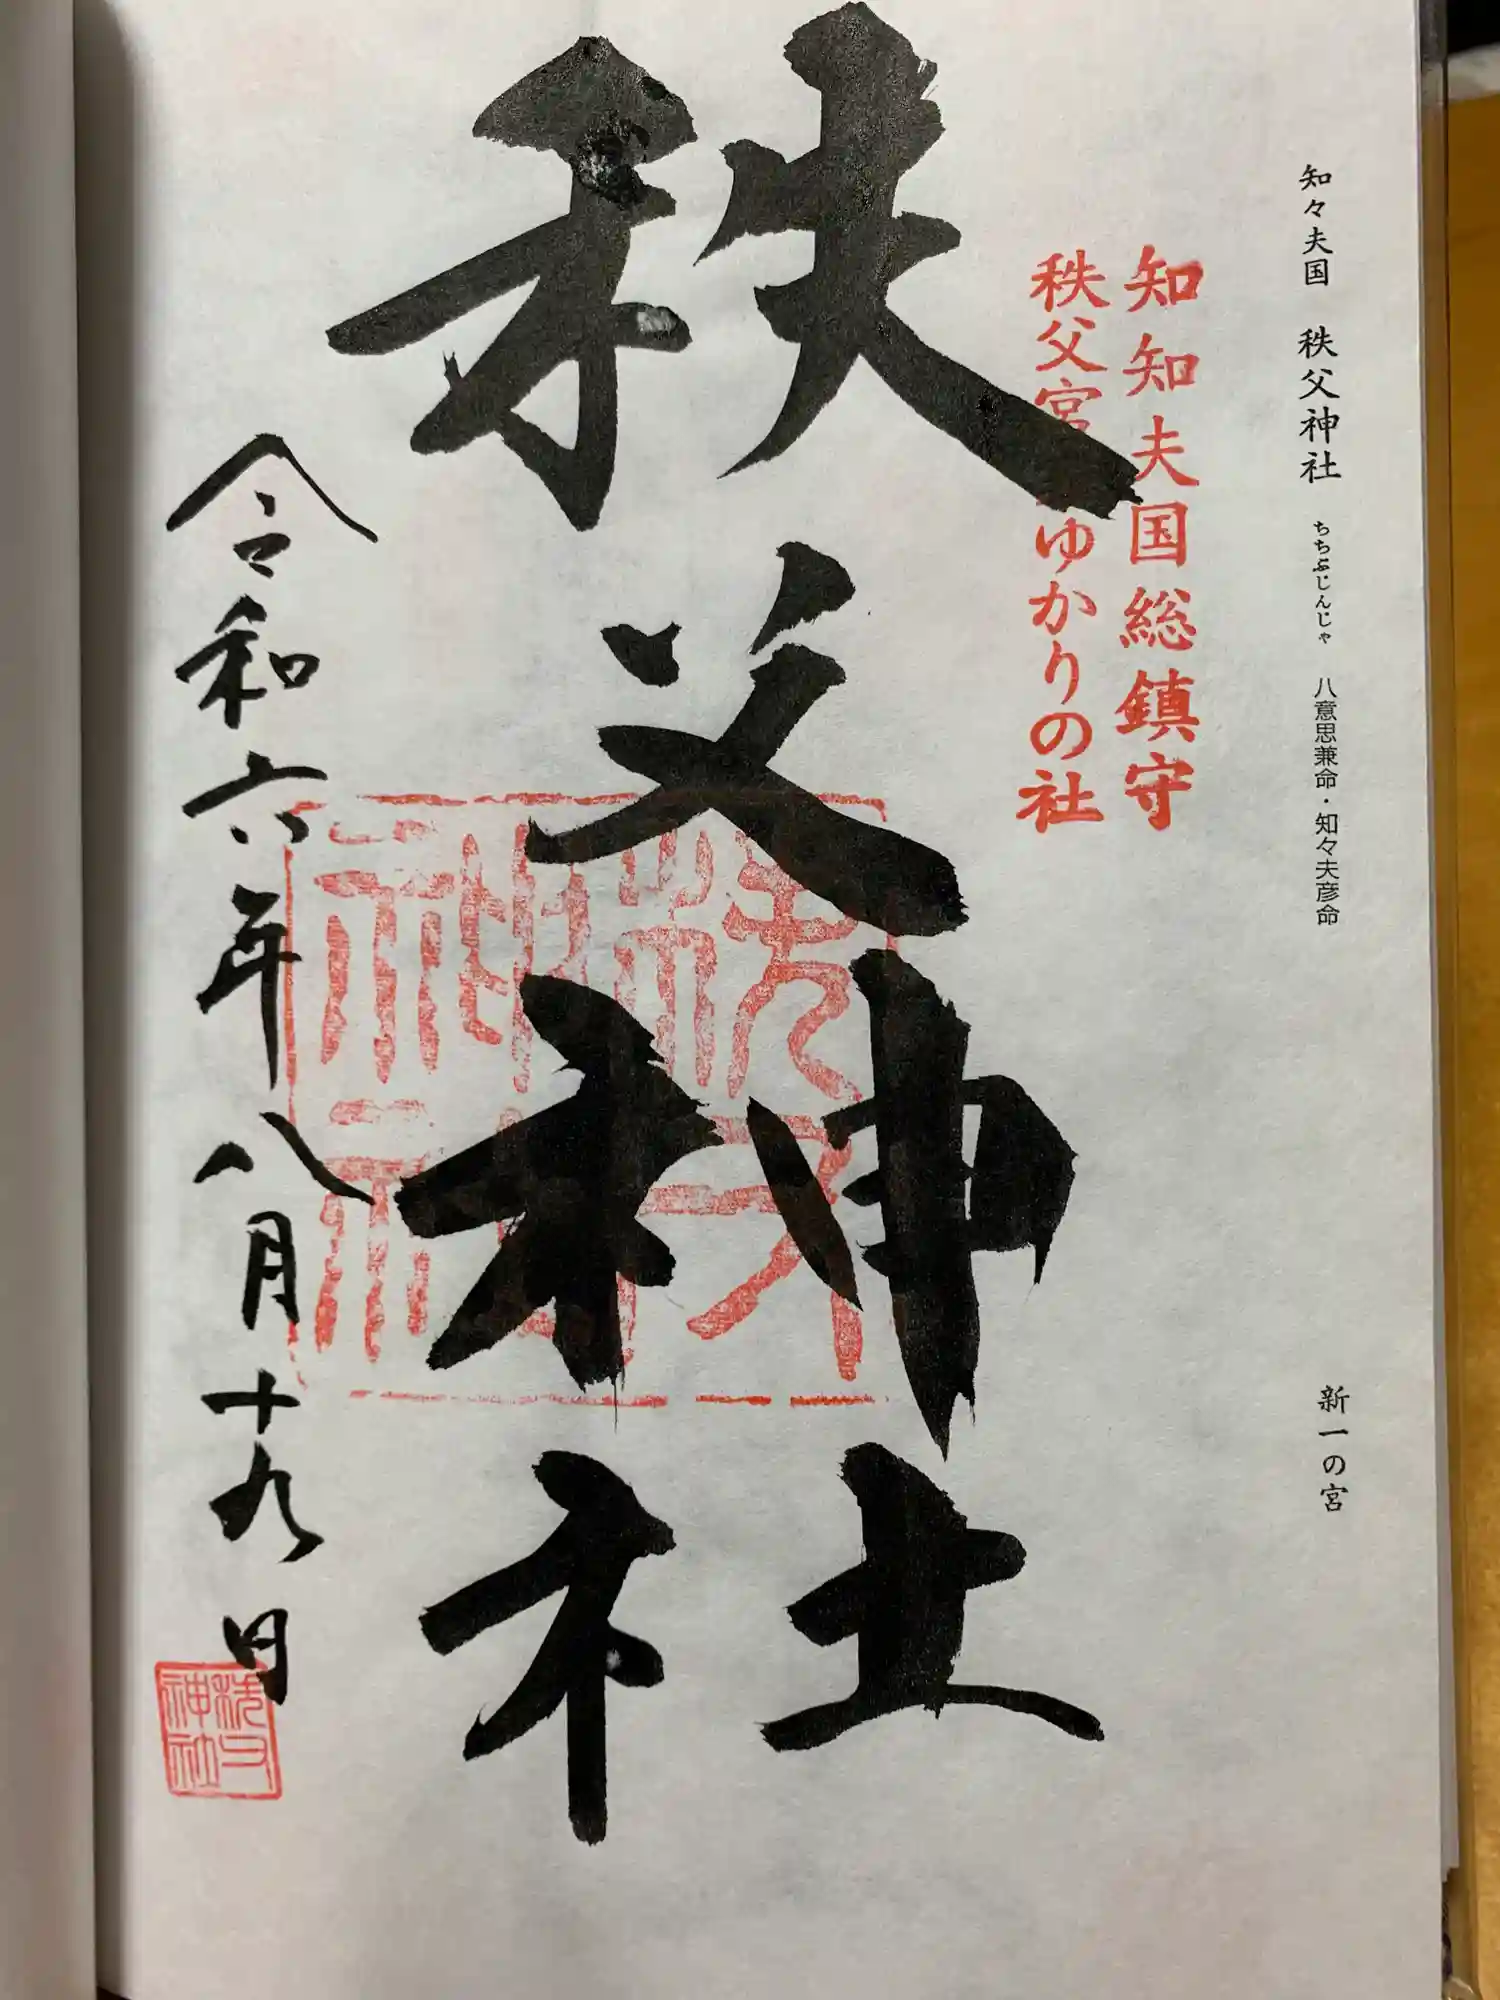 知々夫国 秩父神社 ちちぶじんじゃ 八意思兼命・知々夫彦命 新一の宮
知知夫国総鎮守
秩父宮ゆかりの社
秩父神社
令和六年八月十九日
秩父神社
秩父神社